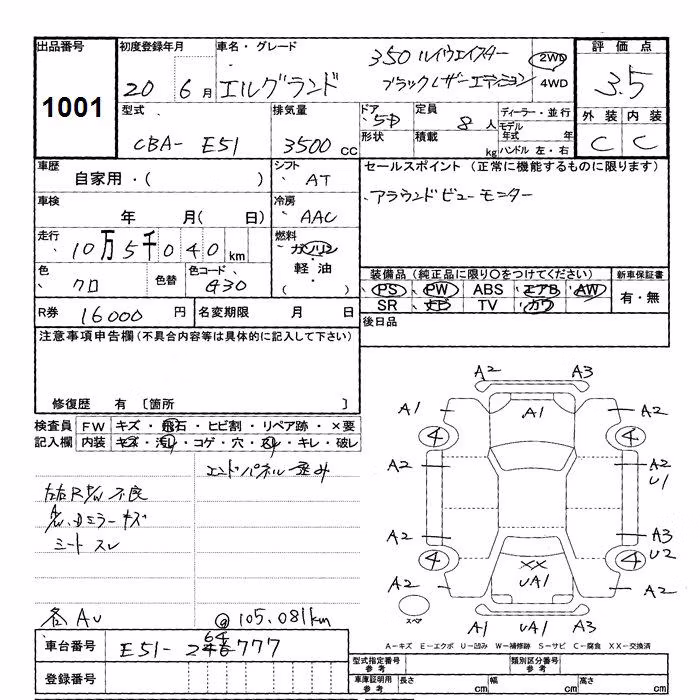 出品番号 初度登録年月 車名・グレード 評価点
1001 20 6月 エルグランド 350 ハイウェイスター 2WD 3.5
ブラックレザーエディション 4WD
型式 排気量 ドア 定員 ディーラー・並行 外装 内装
CBA- E51 3500cc 5D 8人 モデル年式 年 C C
形状 積載 kg ハンドル 左・右
車歴 シフト セールスポイント(正常に機能するものに限ります)
自家用・( ) AT アラウンドビューモニター
車検 冷房
年 月( 日) AAC
走行 燃料
10万5千040km ガソリン
軽油
( )
色 色替 色コード 装備品(純正品に限り○をつけてください) 新車保証書
クロ G30 PS PW ABS エアB AW 有・無
SR ナビ TV カワ
R券 16000円 名変期限 月 日 後日品
注意事項申告欄(不具合内容等は具体的に記入して下さい)
修復歴 有 〔箇所 〕
検査員 FW キズ・飛石・ヒビ割・リペア跡・×要
記入欄 内装 キズ・汚れ・コゲ・穴・スレ・キレ・破レ
エンドパネル歪み
左右R P/W 不良
ミラーキズ
シートスレ
各AU @105.081km
車台番号 E51- 777
登録番号
A2 A3
A1 A1 A2
4 4
A2 A2
U1
A2 A3
U2
4 XX 4
A2 UA1 A2
スペア
A1 UA1 A3
A-キズ E-エクボ U-凹み W-補修跡 S-サビ C-腐食 XX-交換済
型式指定番号 参考 類別区分番号 参考
車庫証明用 参考 長さ cm 幅 cm 高さ cm